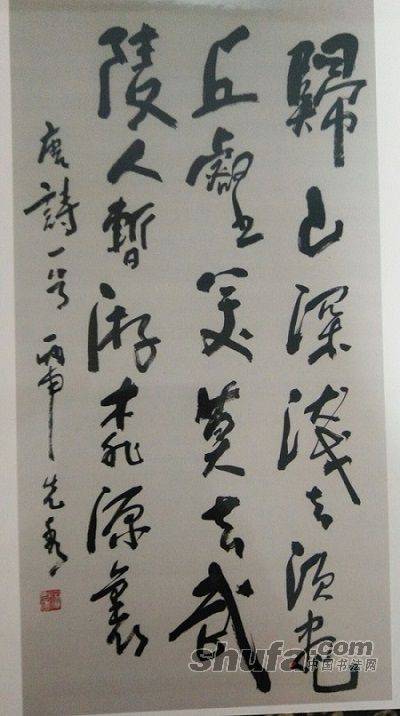 歸山深淺去須盡
丘壑美莫學武
陵人暫游桃源裏
唐詩一首 丙申 先
shufa.com
中国书法网